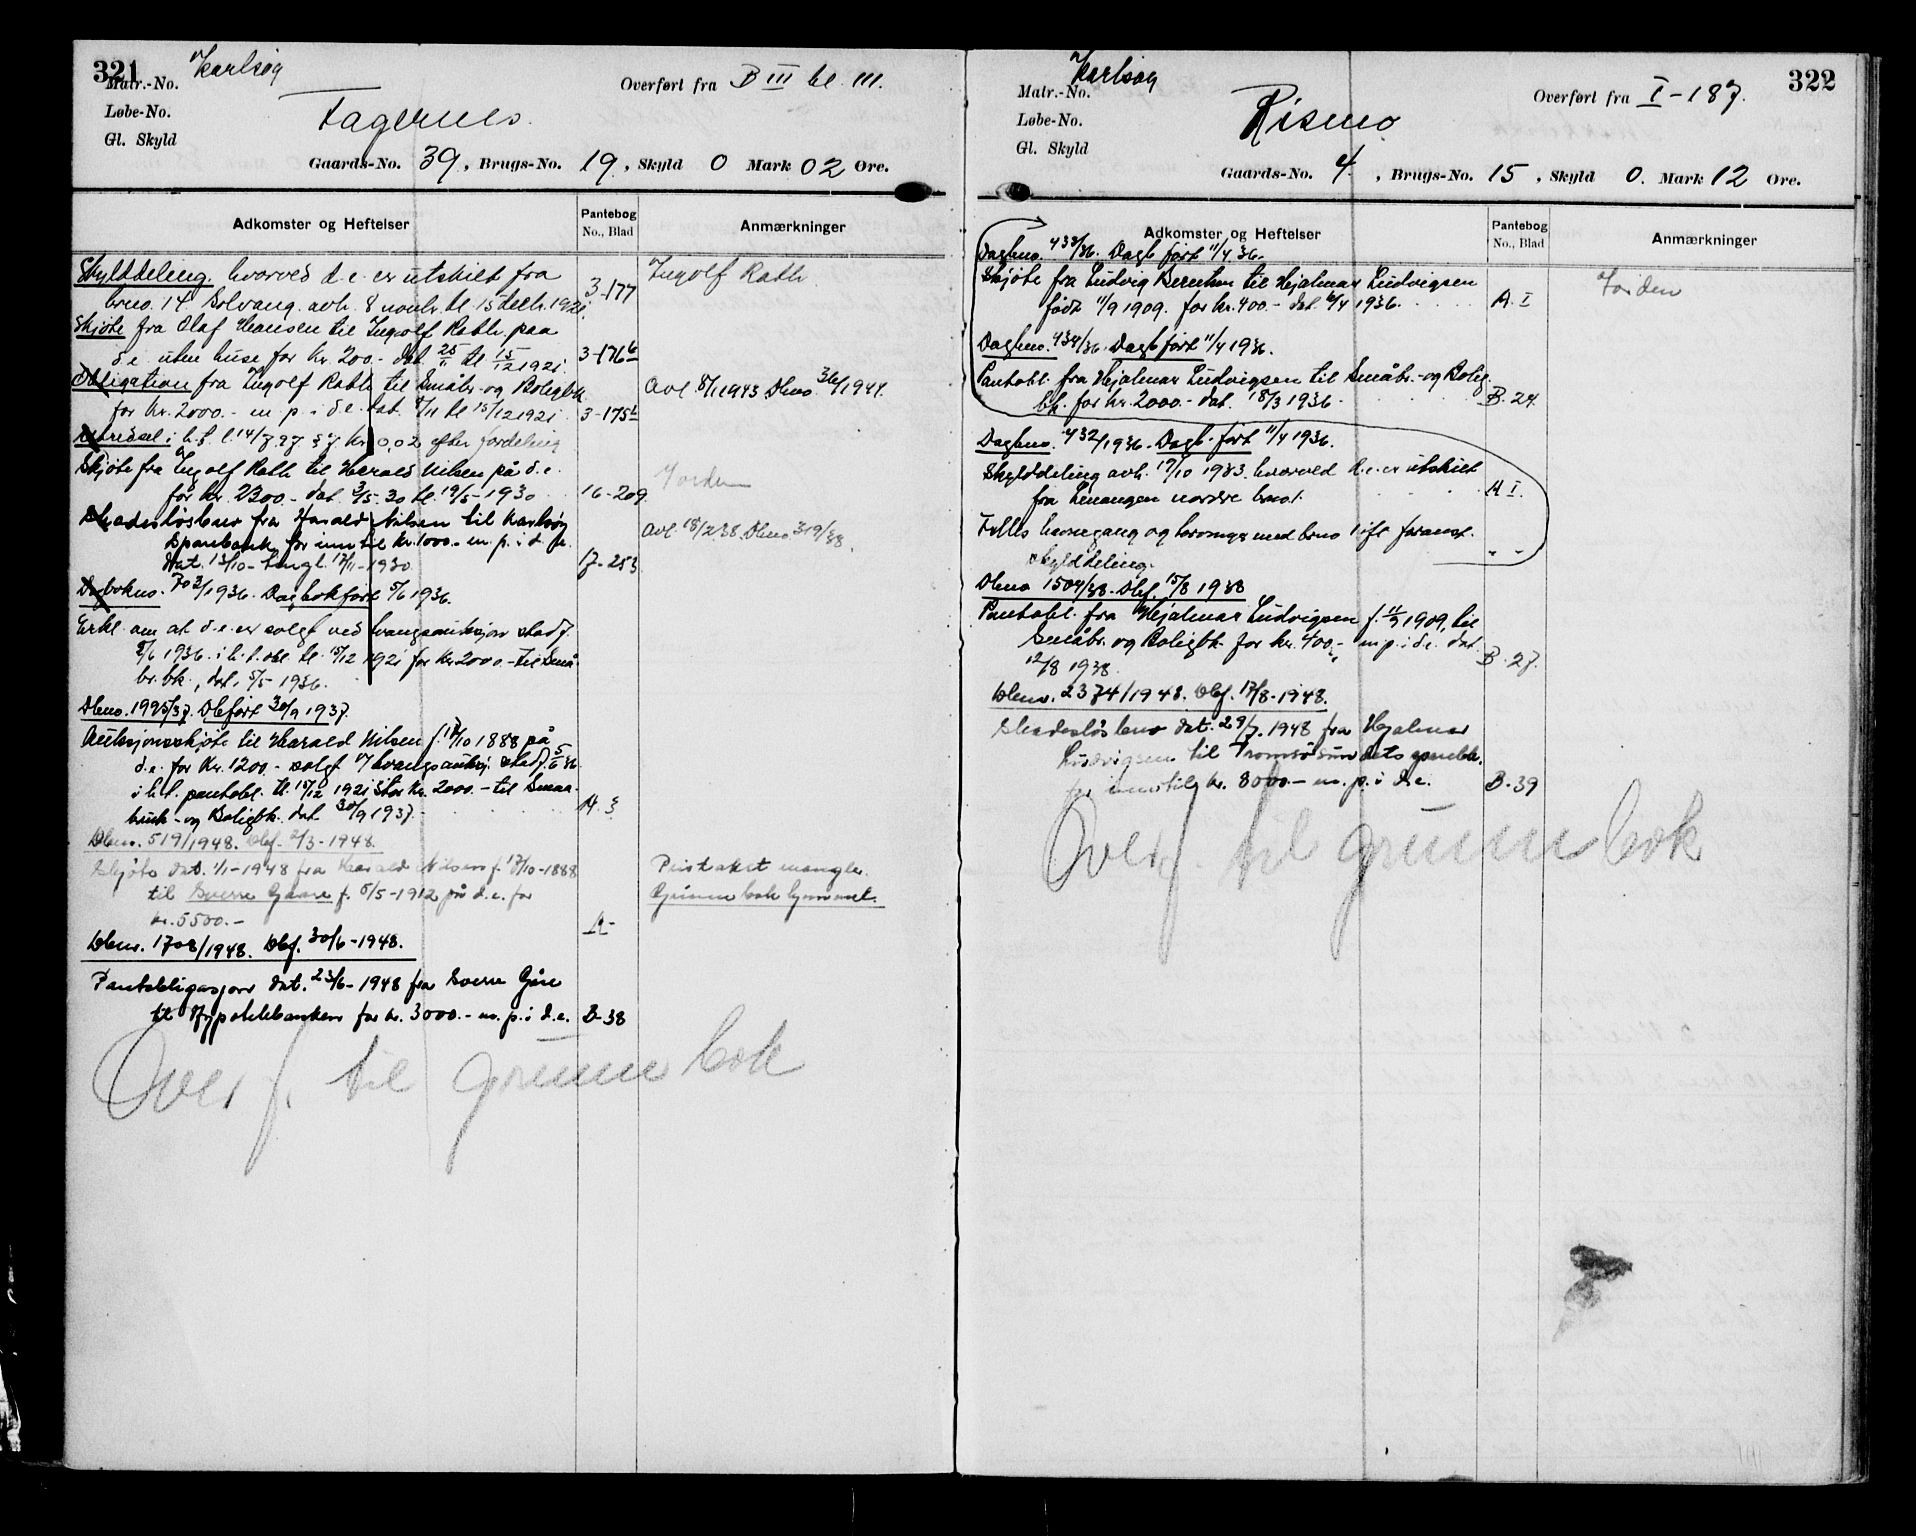 321
Karlsøy
Matr.-No.
Overført fra B III bl. 111.
Løbe-No.
Fagernes.
Gl. Skyld
Gaards-No. 39, Brugs-No. 19, Skyld 0 Mark 02 Øre.
Adkomster og Heftelser
Pantebog No., Blad
Anmærkninger
Skylddeling hvorved d.e. er utskilt fra
brno. 14 Solvang. avh. 8 novbr. tl. 15 decb. 1921.
3-177
Ingolf Rath
Skjøte fra Olaf Hansen til Ingolf Rath paa
d.e. uten huse for kr. 200.- dat. 25/11 tl. 15/12 1921.
3-176b
Obligation fra Ingolf Rath til Småbr.- og Boligbk.
for kr. 2000.- m. p. i d.e. dat. 8/11 tl. 15/12 1921.
3-175b
Avl. 8/1 1943 Dbno. 36/1944.
i h.t. l. 14/7.97 § 7 kr. 0,02 efter fordeling
Skjøte fra Ingolf Rath til Harald Nilsen på d.e.
for kr. 2300.- dat. 3/5-30 tl. 19/5-1930
16-209
Jorden
Skadesløsbrev fra Harald Nilsen til Karlsøy
Sparebank for inntil kr. 1000.- m. p. i d.e.
Dat. 13/10- tingl. 17/11-1930
17-253
Avl. 18/2 38. Dbno 319/38.
Dagbokno. 702/1936. Dagbokført 5/6 1936.
Erkl. om at d.e. er solgt ved tvangsauksjon stadf.
5/6 1936. i h.t. obl. tl. 15/12 1921 for kr. 2000.- til Små-
br.bk., dat. 5/5-1936.
Dbno. 1995/37. Dbført 30/9 1937.
Auksjonsskjøte til Harald Nilsen f. 17/10 1888 på
d.e. for kr. 1200.- solgt v/ tvangsauksj. stadf. 5/6 36
i h.t. pantobl. tl. 15/12 1921 stor kr. 2000.- til Smaa-
bruk- og Boligbk. dat. 30/9 1937.
A. 3
Dbnr. 519/1948. Dbf. 2/3-1948.
Skjøte dat. 1/1-1948 fra Harald Nilsen f. 17/10-1888
til Sverre Gaare f. 5/5-1912 på d.e. for
kr. 5500.-
A-
Pristakst mangler.
Grunnbok hjemmel.
Dbnr. 1708/1948. Dbf. 30/6-1948.
Pantobligasjon dat. 23/6-1948 fra Sverre Gåre
til Hypotekbanken for kr. 3000.- m. p. i d.e.
B-38
Overf. til grunnbok
322
Karlsøy
Matr.-No.
Overført fra I-187.
Løbe-No.
Rismo
Gl. Skyld
Gaards-No. 4., Brugs-No. 15, Skyld 0. Mark 12 Øre.
Adkomster og Heftelser
Pantebog No., Blad
Anmærkninger
Dagbno. 433/36. Dagb.ført 11/4 36.
Skjøte fra Ludvig Berntsen til Hjalmar Ludvigsen
født 11/9 1909. for kr. 400.- dat. 6/4 1936.
A. I
Jorden
Dagbno. 434/36. Dagb.ført 11/4 1936.
Pantobl. fra Hjalmar Ludvigsen til Småbr.- og Bolig-
bk. for kr. 2000.- dat. 18/3 1936.
B. 24
Dagbno. 432/1936. Dagb.ført 11/4 1936.
Skylddeling avh. 17/10 1933. hvorved d.e. er utskilt
fra nordre brno 1.
A I.
Felles havnegang og med brno 1 ifl. foranst.
skylddeling.
" "
Dbno 1504/38. Dbf. 15/8 1938
Pantobl. fra Hjalmar Ludvigsen f. 11/9 1909, til
Småbr. og Boligbk. for kr. 400,- m p. i d.e. dat.
12/8 1938.
B. 27.
Dbnr. 2374/1948. Dbf. 17/8-1948.
Skadesløsbrev dat. 29/7.1948 fra Hjalmar
Ludvigsen til Tromsøsundets sparebk.
for inntil kr. 8000.- m. p. i d.e.
B-39
Overf. til grunnbok